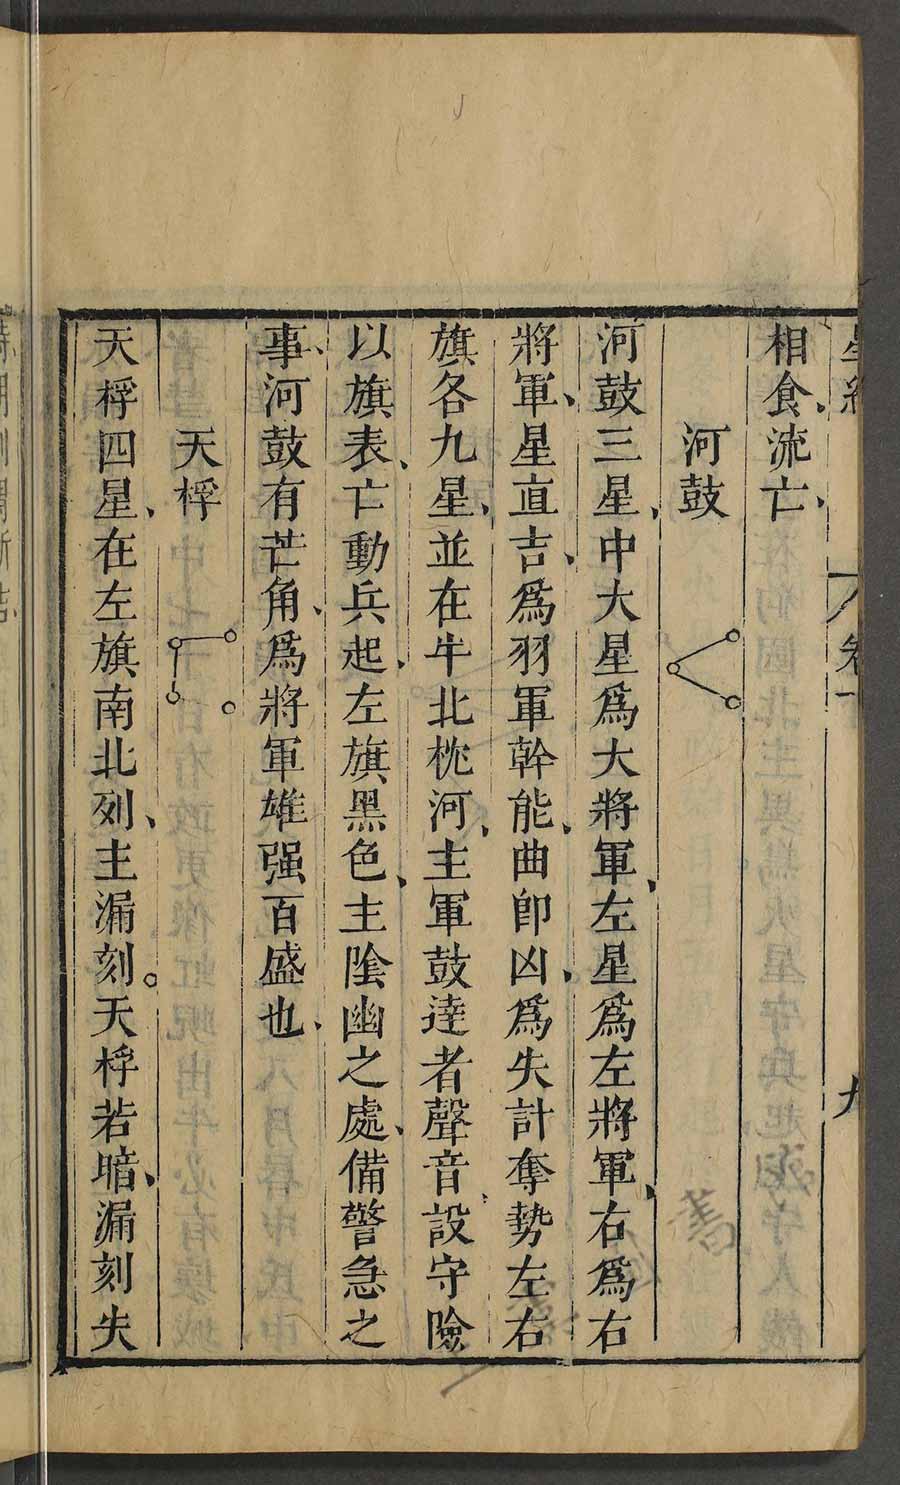 星經 卷下 九
相食流亡
河鼓
河鼓三星、中大星爲大將軍、左星爲左將軍、右爲右
將軍、星直吉、爲羽軍幹能、曲卽凶、爲失計奪勢左右
旗各九星、並在牛北桃河、主軍鼓達者聲音、設守險
以旗表、亡動兵起、左旗黑色、主陰幽之處、備警急之
事、河鼓有芒角、爲將軍雄强百盛也、
天桴
天桴四星、在左旗南北列、主漏刻。天桴若暗、漏刻失